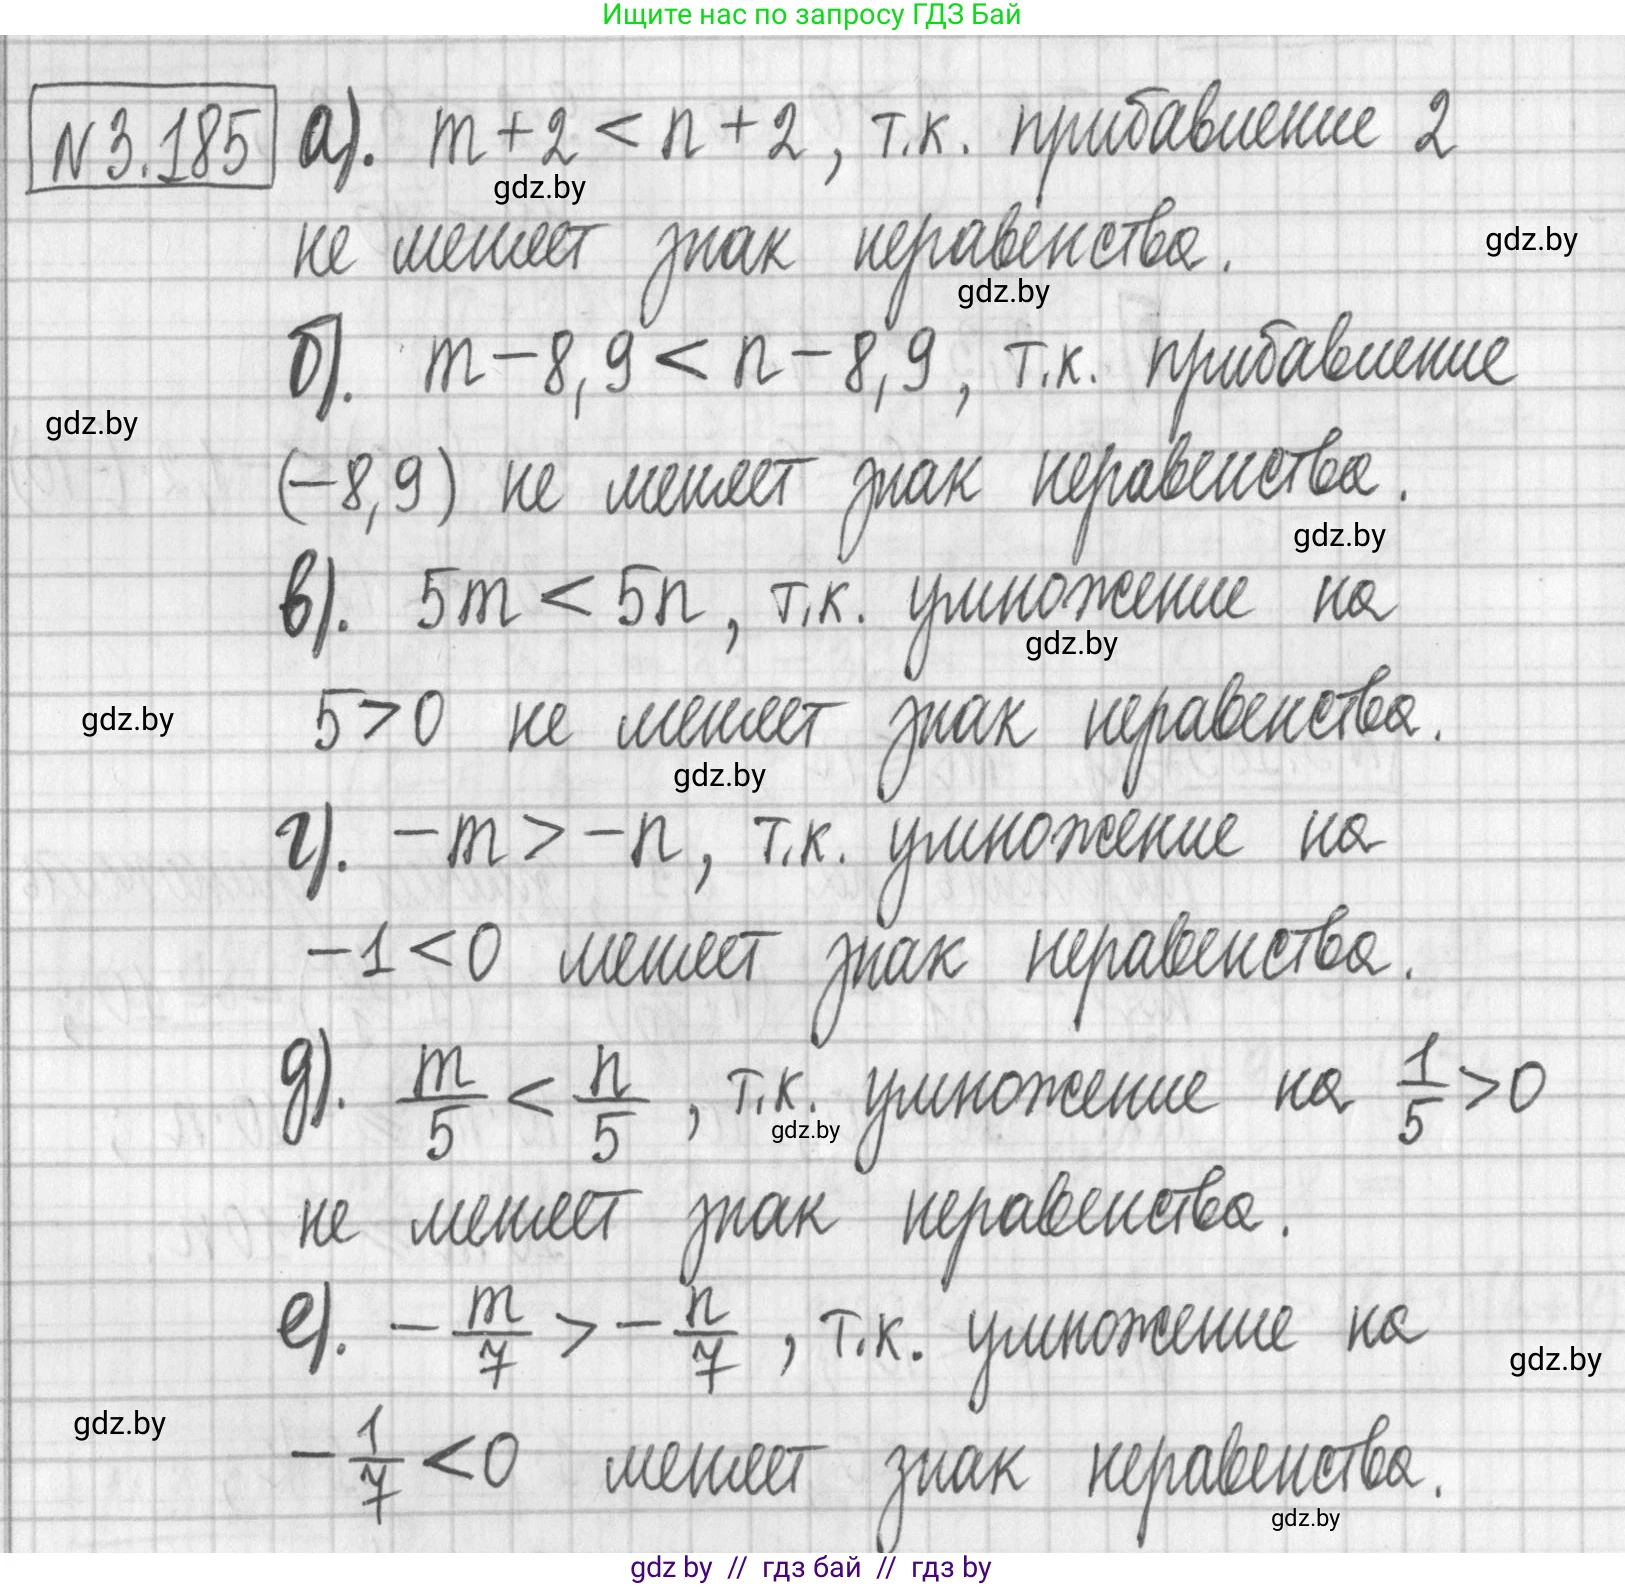 Ищите нас по запросу ГДЗ Бай
N3.185 а). m+2 < n+2, т.к. прибавление 2
gdz.by
не меняет знак неравенства.
gdz.by
gdz.by
б). m-8,9 < n-8,9, т.к. прибавление
gdz.by
(-8,9) не меняет знак неравенства.
gdz.by
в). 5m < 5n, т.к. умножение на
gdz.by
5>0 не меняет знак неравенства.
gdz.by
gdz.by
г). -m > -n, т.к. умножение на
-1<0 меняет знак неравенства.
д). m/5 < n/5, т.к. умножение на 1/5 >0
gdz.by
не меняет знак неравенства.
е). -m/7 > -n/7, т.к. умножение на
gdz.by
gdz.by
-1/7 <0 меняет знак неравенства.
gdz.by
gdz by // гдз бай // гдз by